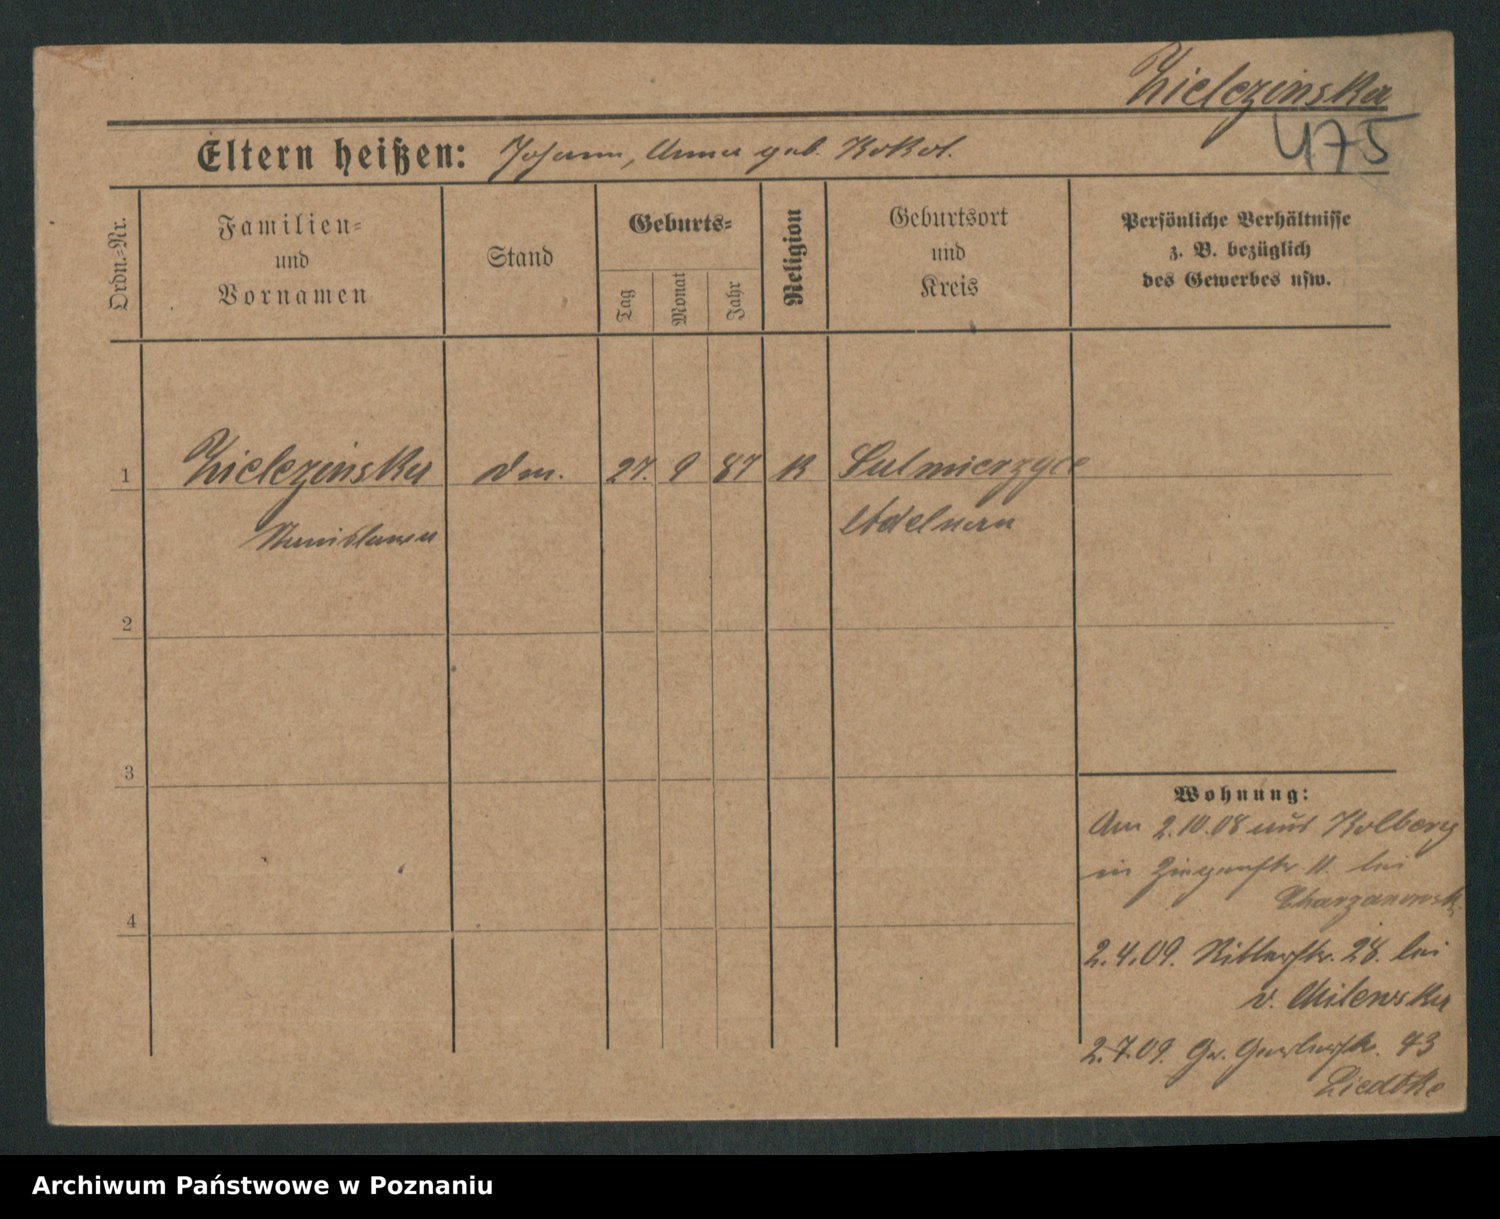 Zielezinska
475
Eltern heißen: Johann, Anna geb. Kokot.
Ordn.=Nr.
Familien=
und
Vornamen
Stand
Geburts=
Tag
Monat
Jahr
Religion
Geburtsort
und
Kreis
Persönliche Verhältnisse
z. B. bezüglich
des Gewerbes usw.
1 Zielezinska dm. 27. 9 87 K Sulmierzyce
Stanislawa Adelnau
2
3
4
Wohnung:
Am 2.10.08 aus Kolberg
in Ziegenstr 11. bei
2.4.09. Ritterstr. 28. bei
v. Milewska
2.7.09. Gr. Gerberstr. 43
Liedtke
Archiwum Państwowe w Poznaniu